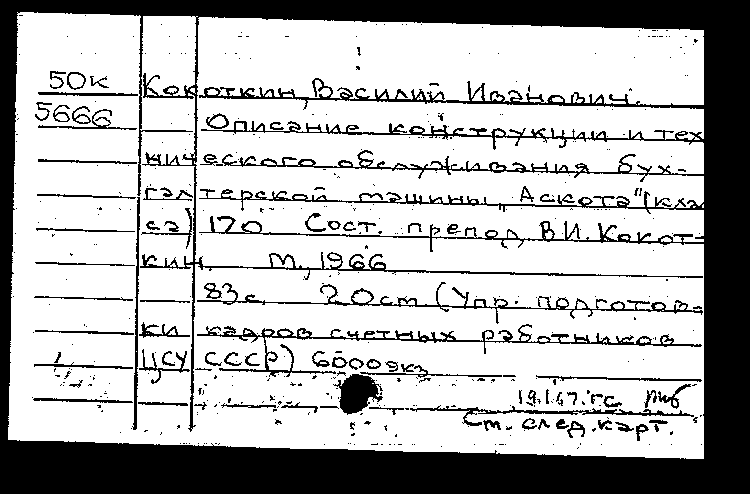 50к Кокоткин, Василий Иванович.
5666 Описание конструкции и тех
нического обслуживания бух-
галтерской машины „Аскота" (кла
са) 170 Сост. препод. В.И. Кокот-
кин. М., 1966
83с. 20см (Упр. подготов-
ки кадров счетных работников
ЦСУ СССР) 6000экз
19.I.67.
Ст. след. карт.